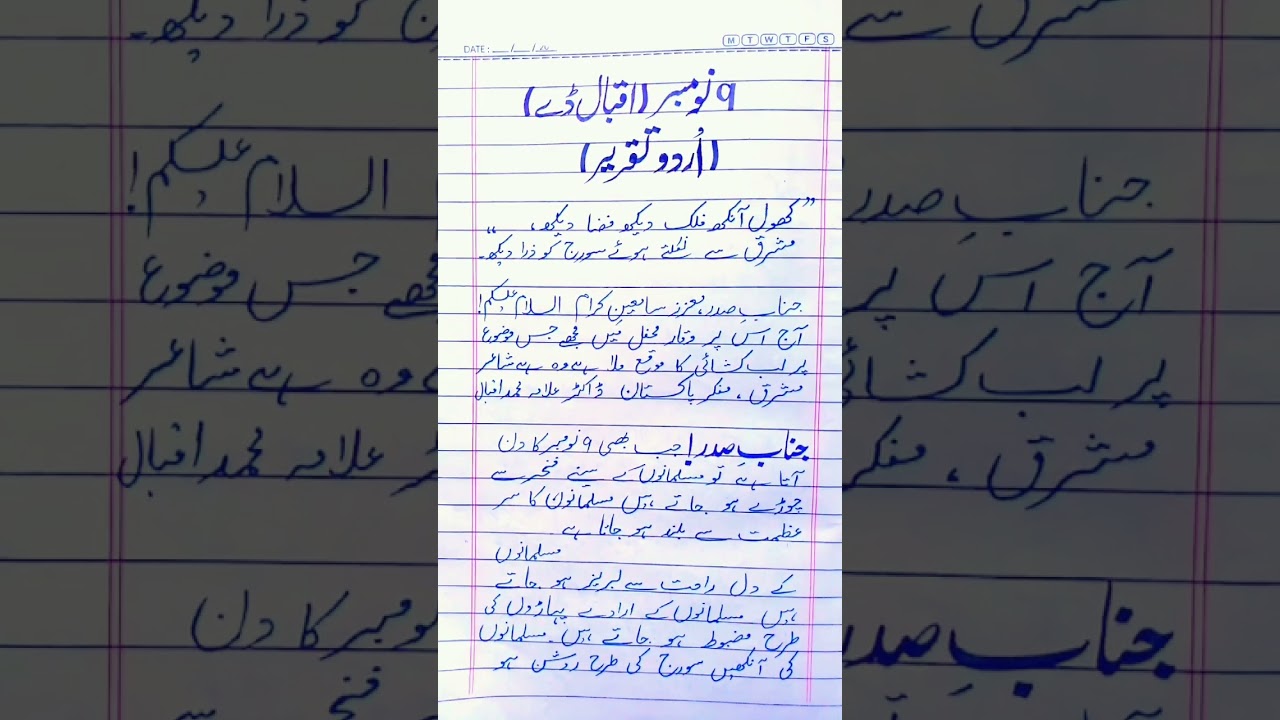 DATE: __/__/20__
M T W T F S
۹ نومبر (اقبال ڈے)
(اُردو تقریر)
"کھول آنکھ فلک دیکھ فضا دیکھ،
مشرق سے نکلتے ہوئے سورج کو ذرا دیکھ۔"
جنابِ صدر، معزز سامعین کرام السلام علیکم!
آج اس پر وقار محفل میں مجھے جس موضوع
پر لب کشائی کا موقع ملا ہے وہ ہے شاعر
مشرق، مفکر پاکستان ڈاکٹر علامہ محمد اقبال
جنابِ صدر! جب بھی ۹ نومبر کا دن
آتا ہے تو مسلمانوں کے سینے فخر سے
چوڑے ہو جاتے ہیں مسلمانوں کا سر
عظمت سے بلند ہو جاتا ہے
مسلمانوں
کے دل راحت سے لبریز ہو جاتے
ہیں مسلمانوں کے ارادے پہاڑوں کی
طرح مضبوط ہو جاتے ہیں۔ مسلمانوں
کی آنکھیں سورج کی طرح روشن ہو